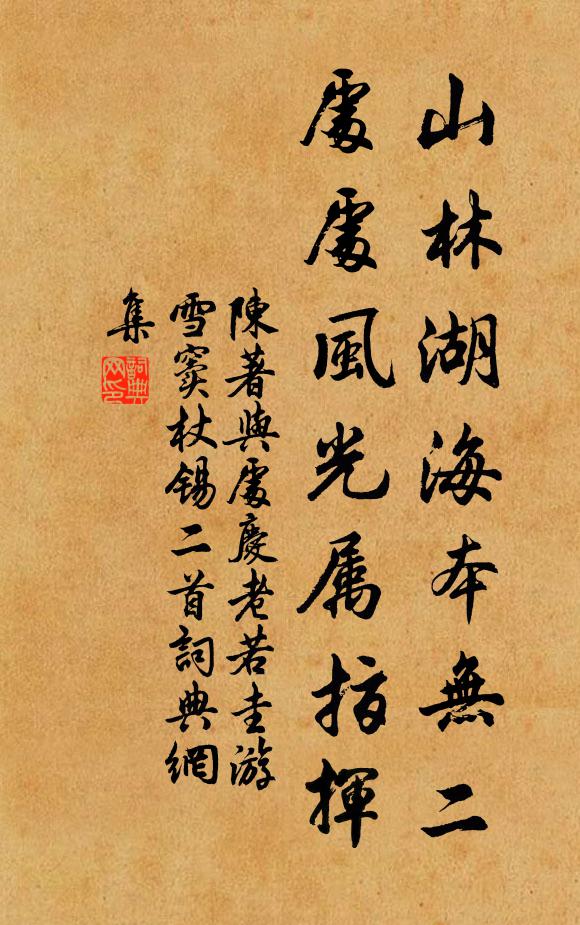 山林湖海本無二
處處風光属指揮
陳著與處慶老若圭游
雪竇杖錫二首詞典網
集
詞典网印